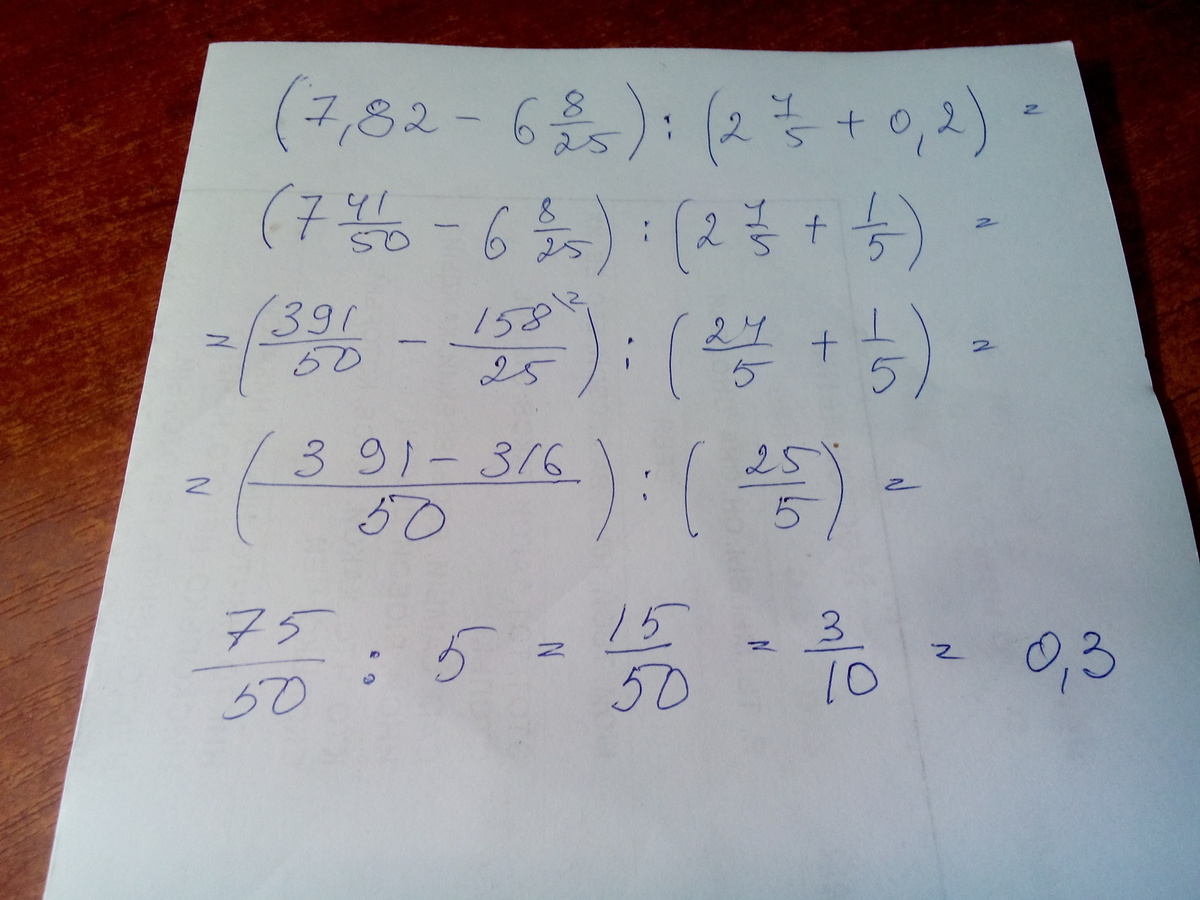 (7,82 - 6 8/25) : (2 4/5 + 0,2) =
(7 41/50 - 6 8/25) : (2 4/5 + 1/5) =
= (391/50 - 158\2/25) : (24/5 + 1/5) =
= (391 - 316/50) : (25/5) =
75/50 : 5 = 15/50 = 3/10 = 0,3